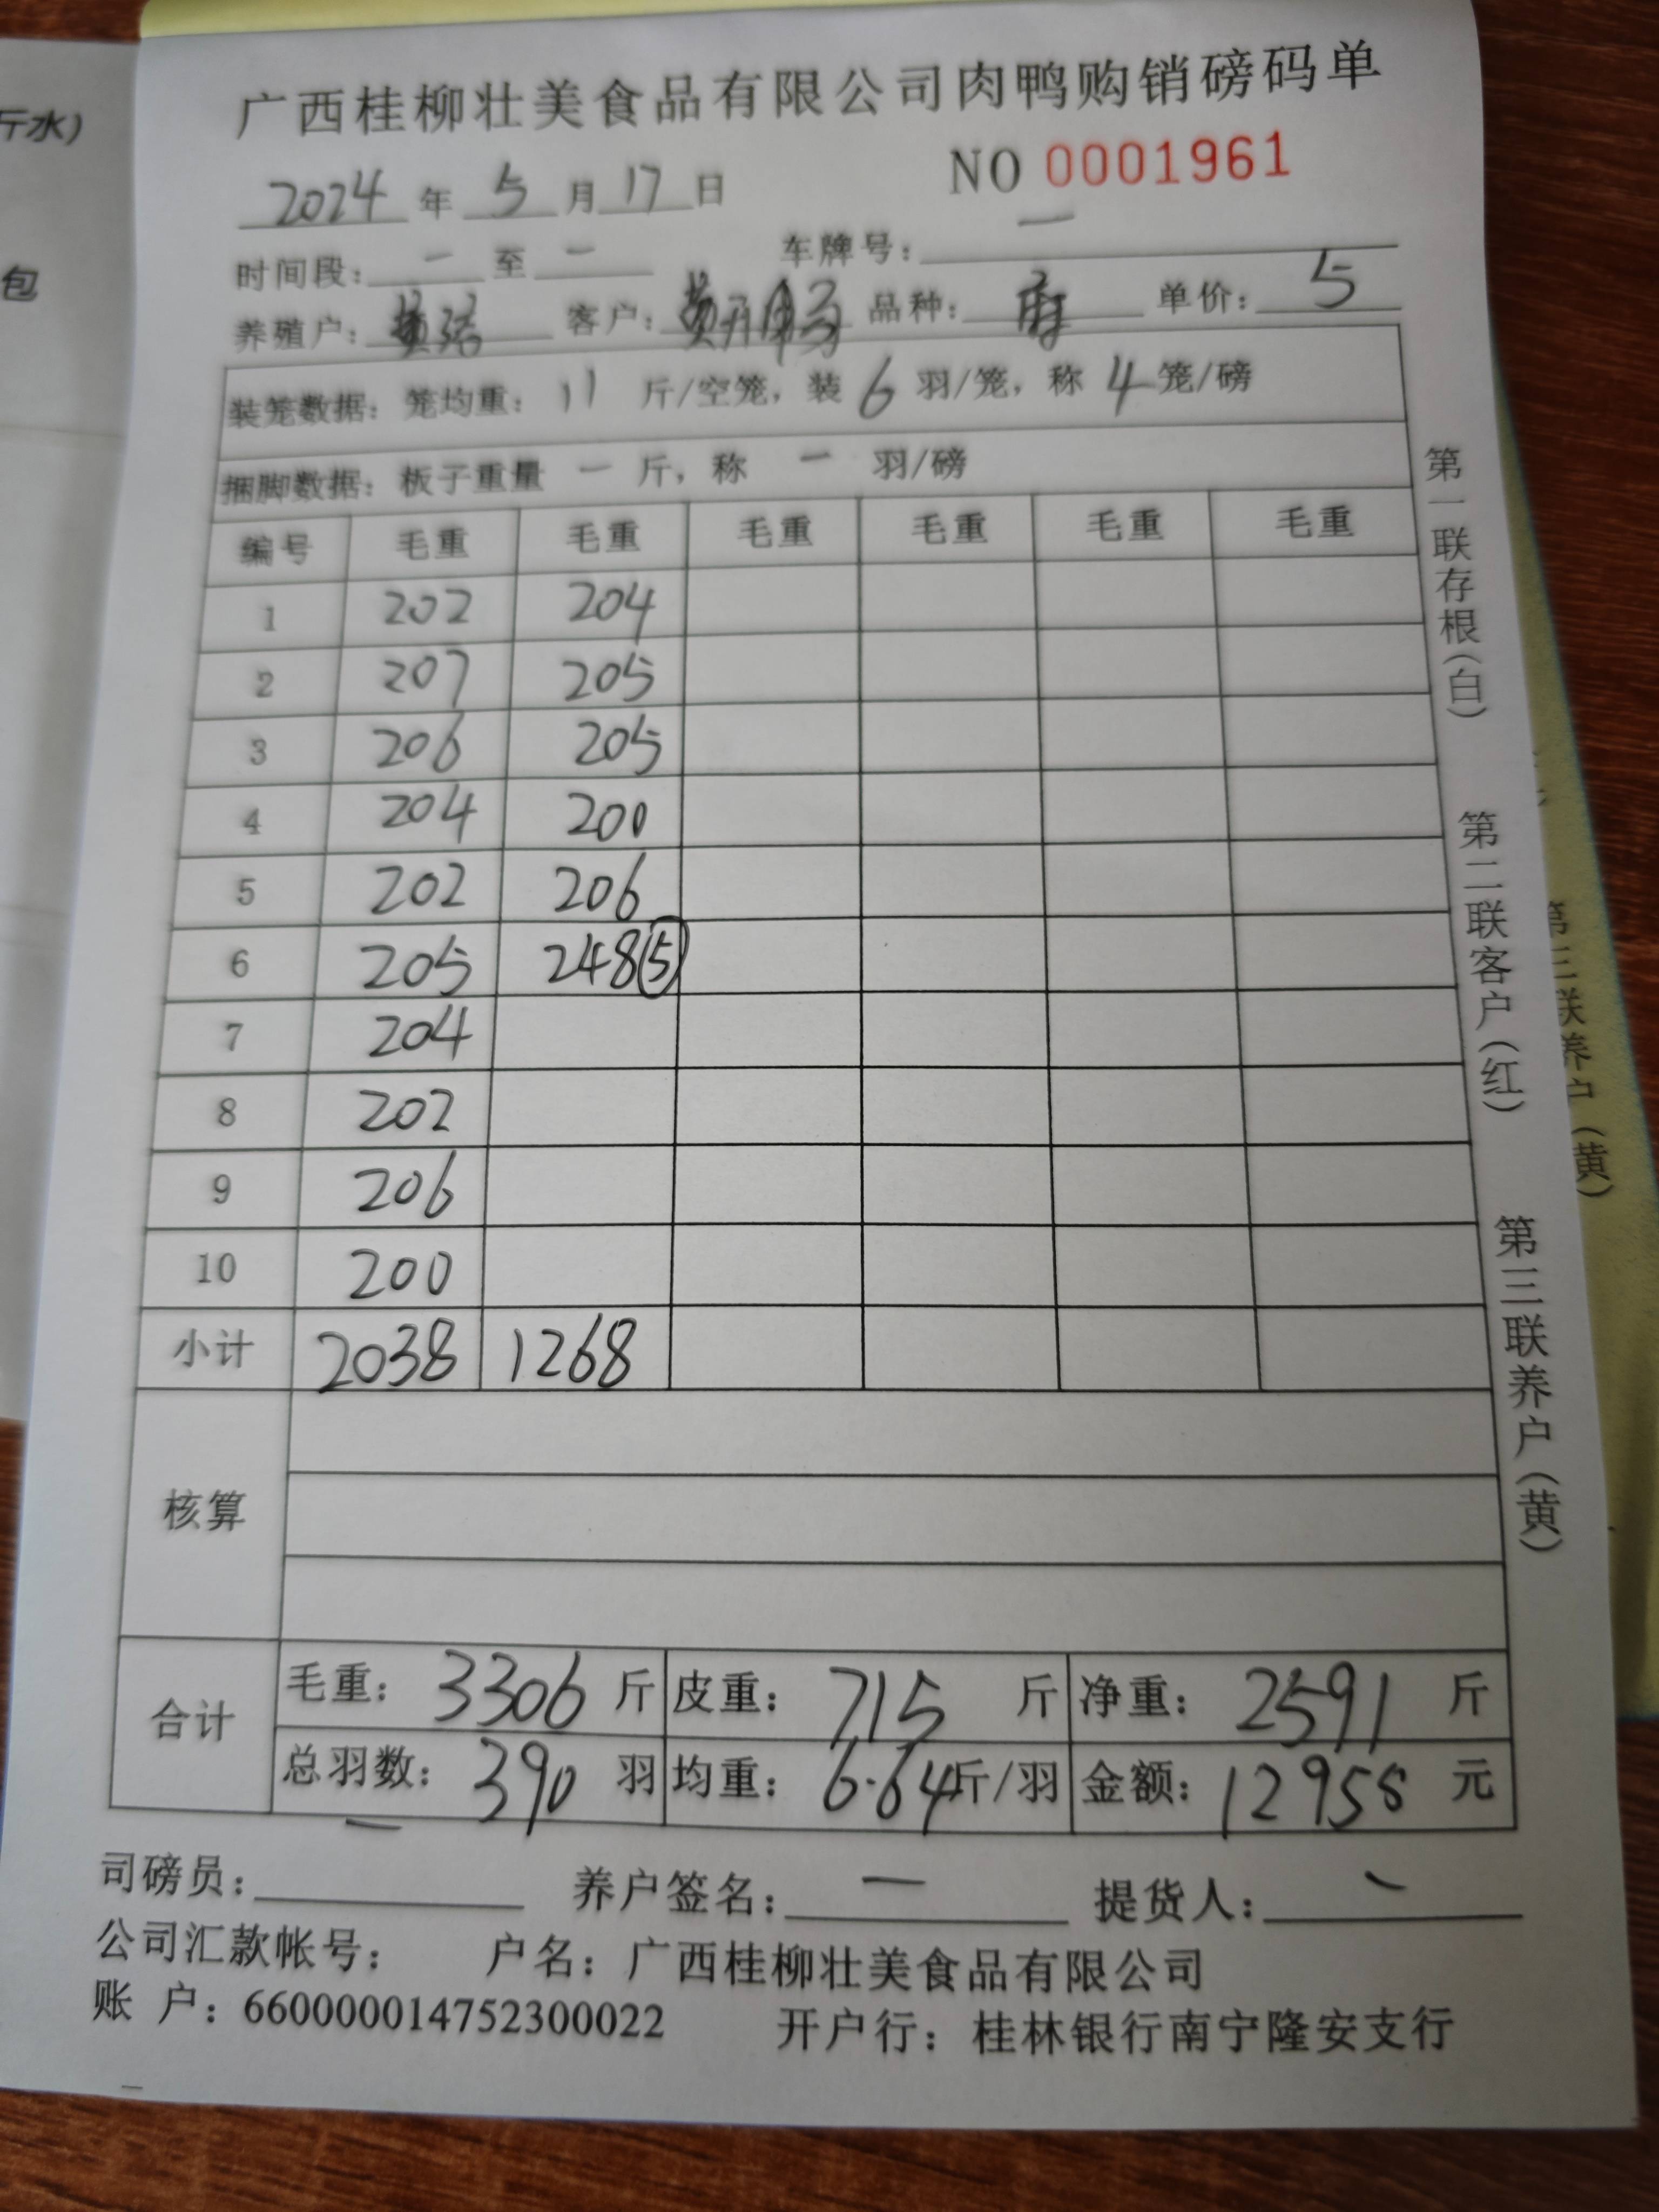 斤水)
包
广西桂柳壮美食品有限公司肉鸭购销磅码单
NO 0001961
2024 年 5 月 17 日
时间段: 一 至 一 车牌号: 一
养殖户: 客户: 品种: 麻 单价: 5
装笼数据: 笼均重: 11 斤/空笼, 装 6 羽/笼, 称 4 笼/磅
捆脚数据: 板子重量 一 斤, 称 一 羽/磅
编号 毛重 毛重 毛重 毛重 毛重 毛重
1 202 204
2 207 205
3 206 205
4 204 200
5 202 206
6 205 248(5)
7 204
8 202
9 206
10 200
小计 2038 1268
核算
合计 毛重: 3306 斤 皮重: 715 斤 净重: 2591 斤
总羽数: 390 羽 均重: 6.64 斤/羽 金额: 12955 元
司磅员: 一 养户签名: 一 提货人: 一
公司汇款帐号: 户名: 广西桂柳壮美食品有限公司
账 户: 660000014752300022 开户行: 桂林银行南宁隆安支行
第一联存根(白) 第二联客户(红) 第三联养户(黄)
第三联养户(黄)